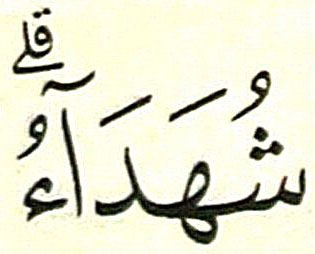 شُهَدَآءُۗ